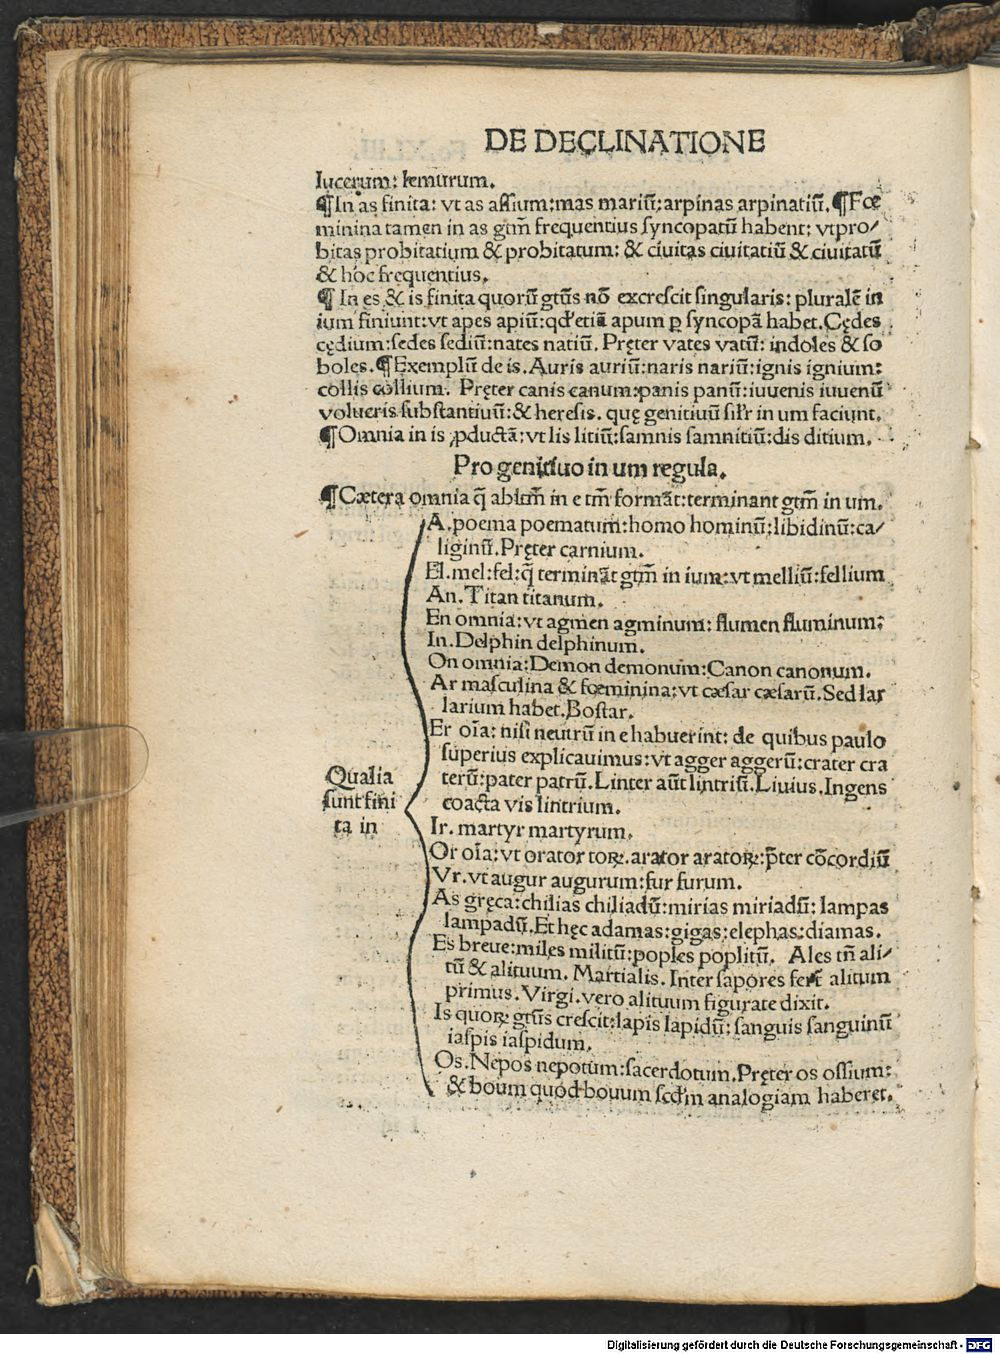 DE DECLINATIONE
lucerum: lemurum.
¶In as finita: vt as assium:mas mariū:arpinas arpinatiū.¶Fœ
minina tamen in as gtm̄ frequentius syncopatū habent: vt pro/
bitas probitatium & probitatum: & ciuitas ciuitatiū & ciuitatū
& hoc frequentius.
¶In es & is finita quorū gtūs nō excrescit singularis: pluralē in
ium finiunt:vt apes apiū:qđ etiā apum ꝑ syncopā habet.Cędes
cędium:sedes sediū:nates natiū. Pręter vates vatū: indoles & so
boles.¶Exemplū de is. Auris auriū:naris nariū:ignis ignium:
collis collium. Pręter canis canum:panis panū:iuuenis iuuenū
volucris substantiuū:& heresis. quę genitiuū silr̄ in um faciunt.
¶Omnia in is ꝓductā:vt lis litiū:samnis samnitiū:dis ditium.
Pro genitiuo in um regula.
¶Cætera omnia q̄ abltm̄ in e tm̄ formāt:terminant gtm̄ in um.
Qualia
sunt fini
ta in
A.poema poematum:homo hominū:libidinū:ca/
liginū.Pręter carnium.
El.mel:fel:q̄ termināt gtm̄ in ium:vt melliū:fellium
An.Titan titanum.
En omnia:vt agmen agminum: flumen fluminum:
In.Delphin delphinum.
On omnia:Demon demonum:Canon canonum.
Ar masculina & fœminina:vt cæsar cæsarū.Sed lar
larium habet.Bostar.
Er oīa: nisi neutrū in e habuerint: de quibus paulo
superius explicauimus:vt agger aggerū:crater cra
terū:pater patrū.Linter aūt lintriū.Liuius.Ingens
coacta vis lintrium.
Ir. martyr martyrum.
Or oīa:vt orator toꝝ.arator aratoꝝ:p̄ter cōcordiū
Vr.vt augur augurum:fur furum.
As gręca:chilias chiliadū:mirias miriadū: lampas
lampadū.Et hęc adamas:gigas:elephas:diamas.
Es breue:miles militū:poples poplitū. Ales tn̄ ali/
tū & alituum. Martialis.Inter sapores alitum
primus.Virgi.vero alituum figurate dixit.
Is quoꝝ gtūs crescit:lapis lapidū: sanguis sanguinū
iaspis iaspidum.
Os.Nepos nepotum:sacerdotum.Pręter os ossium:
& boum quod bouum scđm analogiam haberet.
Digitalisierung gefördert durch die Deutsche Forschungsgemeinschaft - DFG